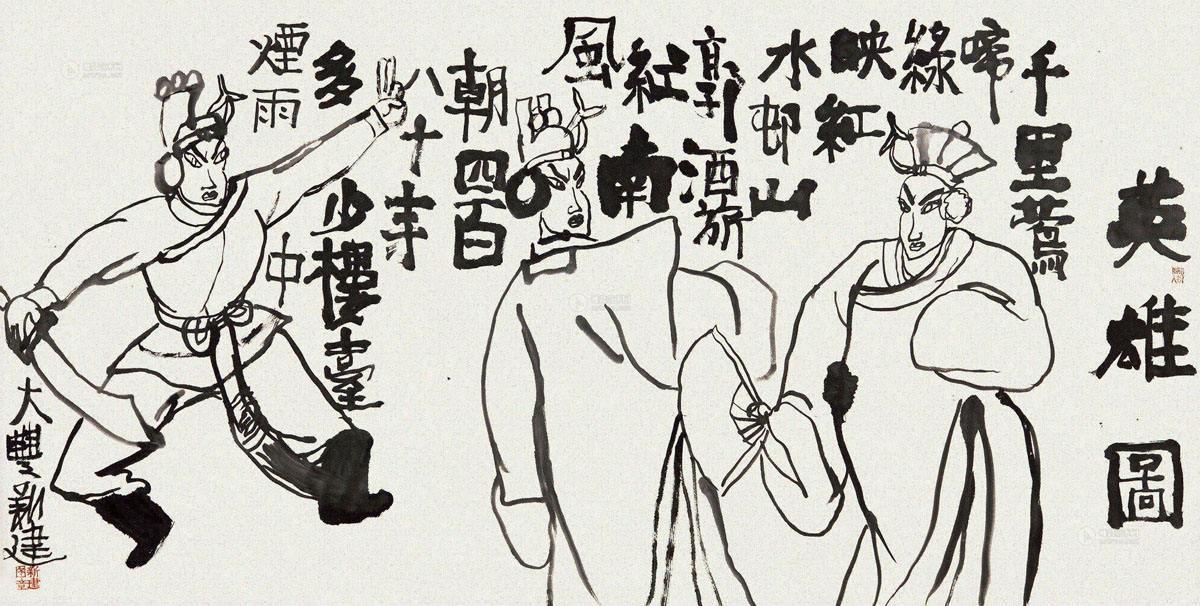 英雄圖
千里鶯
啼
綠
映紅
水邨山
郭酒旂
紅南
風
朝四百
八十寺
多少樓臺
煙雨中
大豐新建